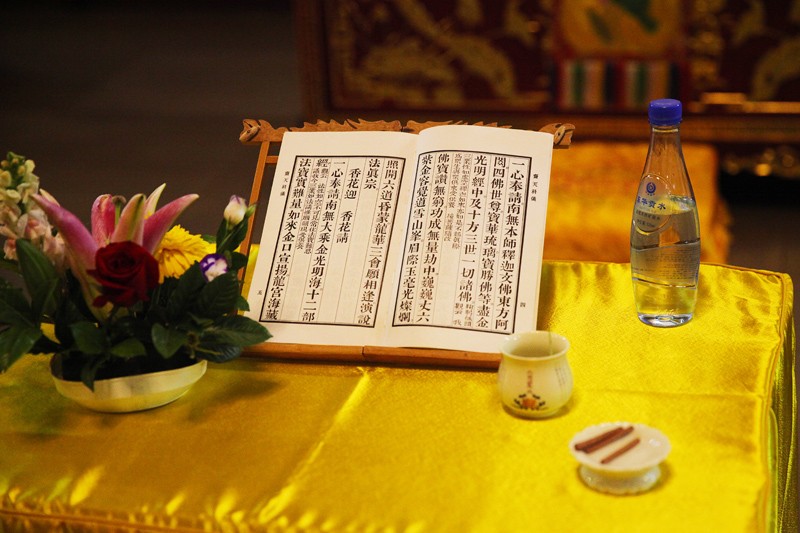 齋天科儀
一心奉請南無本師釋迦文佛東方阿
閦四佛世尊寶華琉璃寶勝佛等盡金
光明經中及十方三世一切諸佛
佛寶讚無窮功成無量劫中巍巍丈六
紫金容覺道雪山峯眉際玉毫光燦爛
四
照開六道昏蒙龍華三會願相逢演說
法眞宗
香花迎 香花請
一心奉請南無大乘金光明海十二部
經
法寶實難量如來金口宣揚龍宮海藏
齋天科儀
五